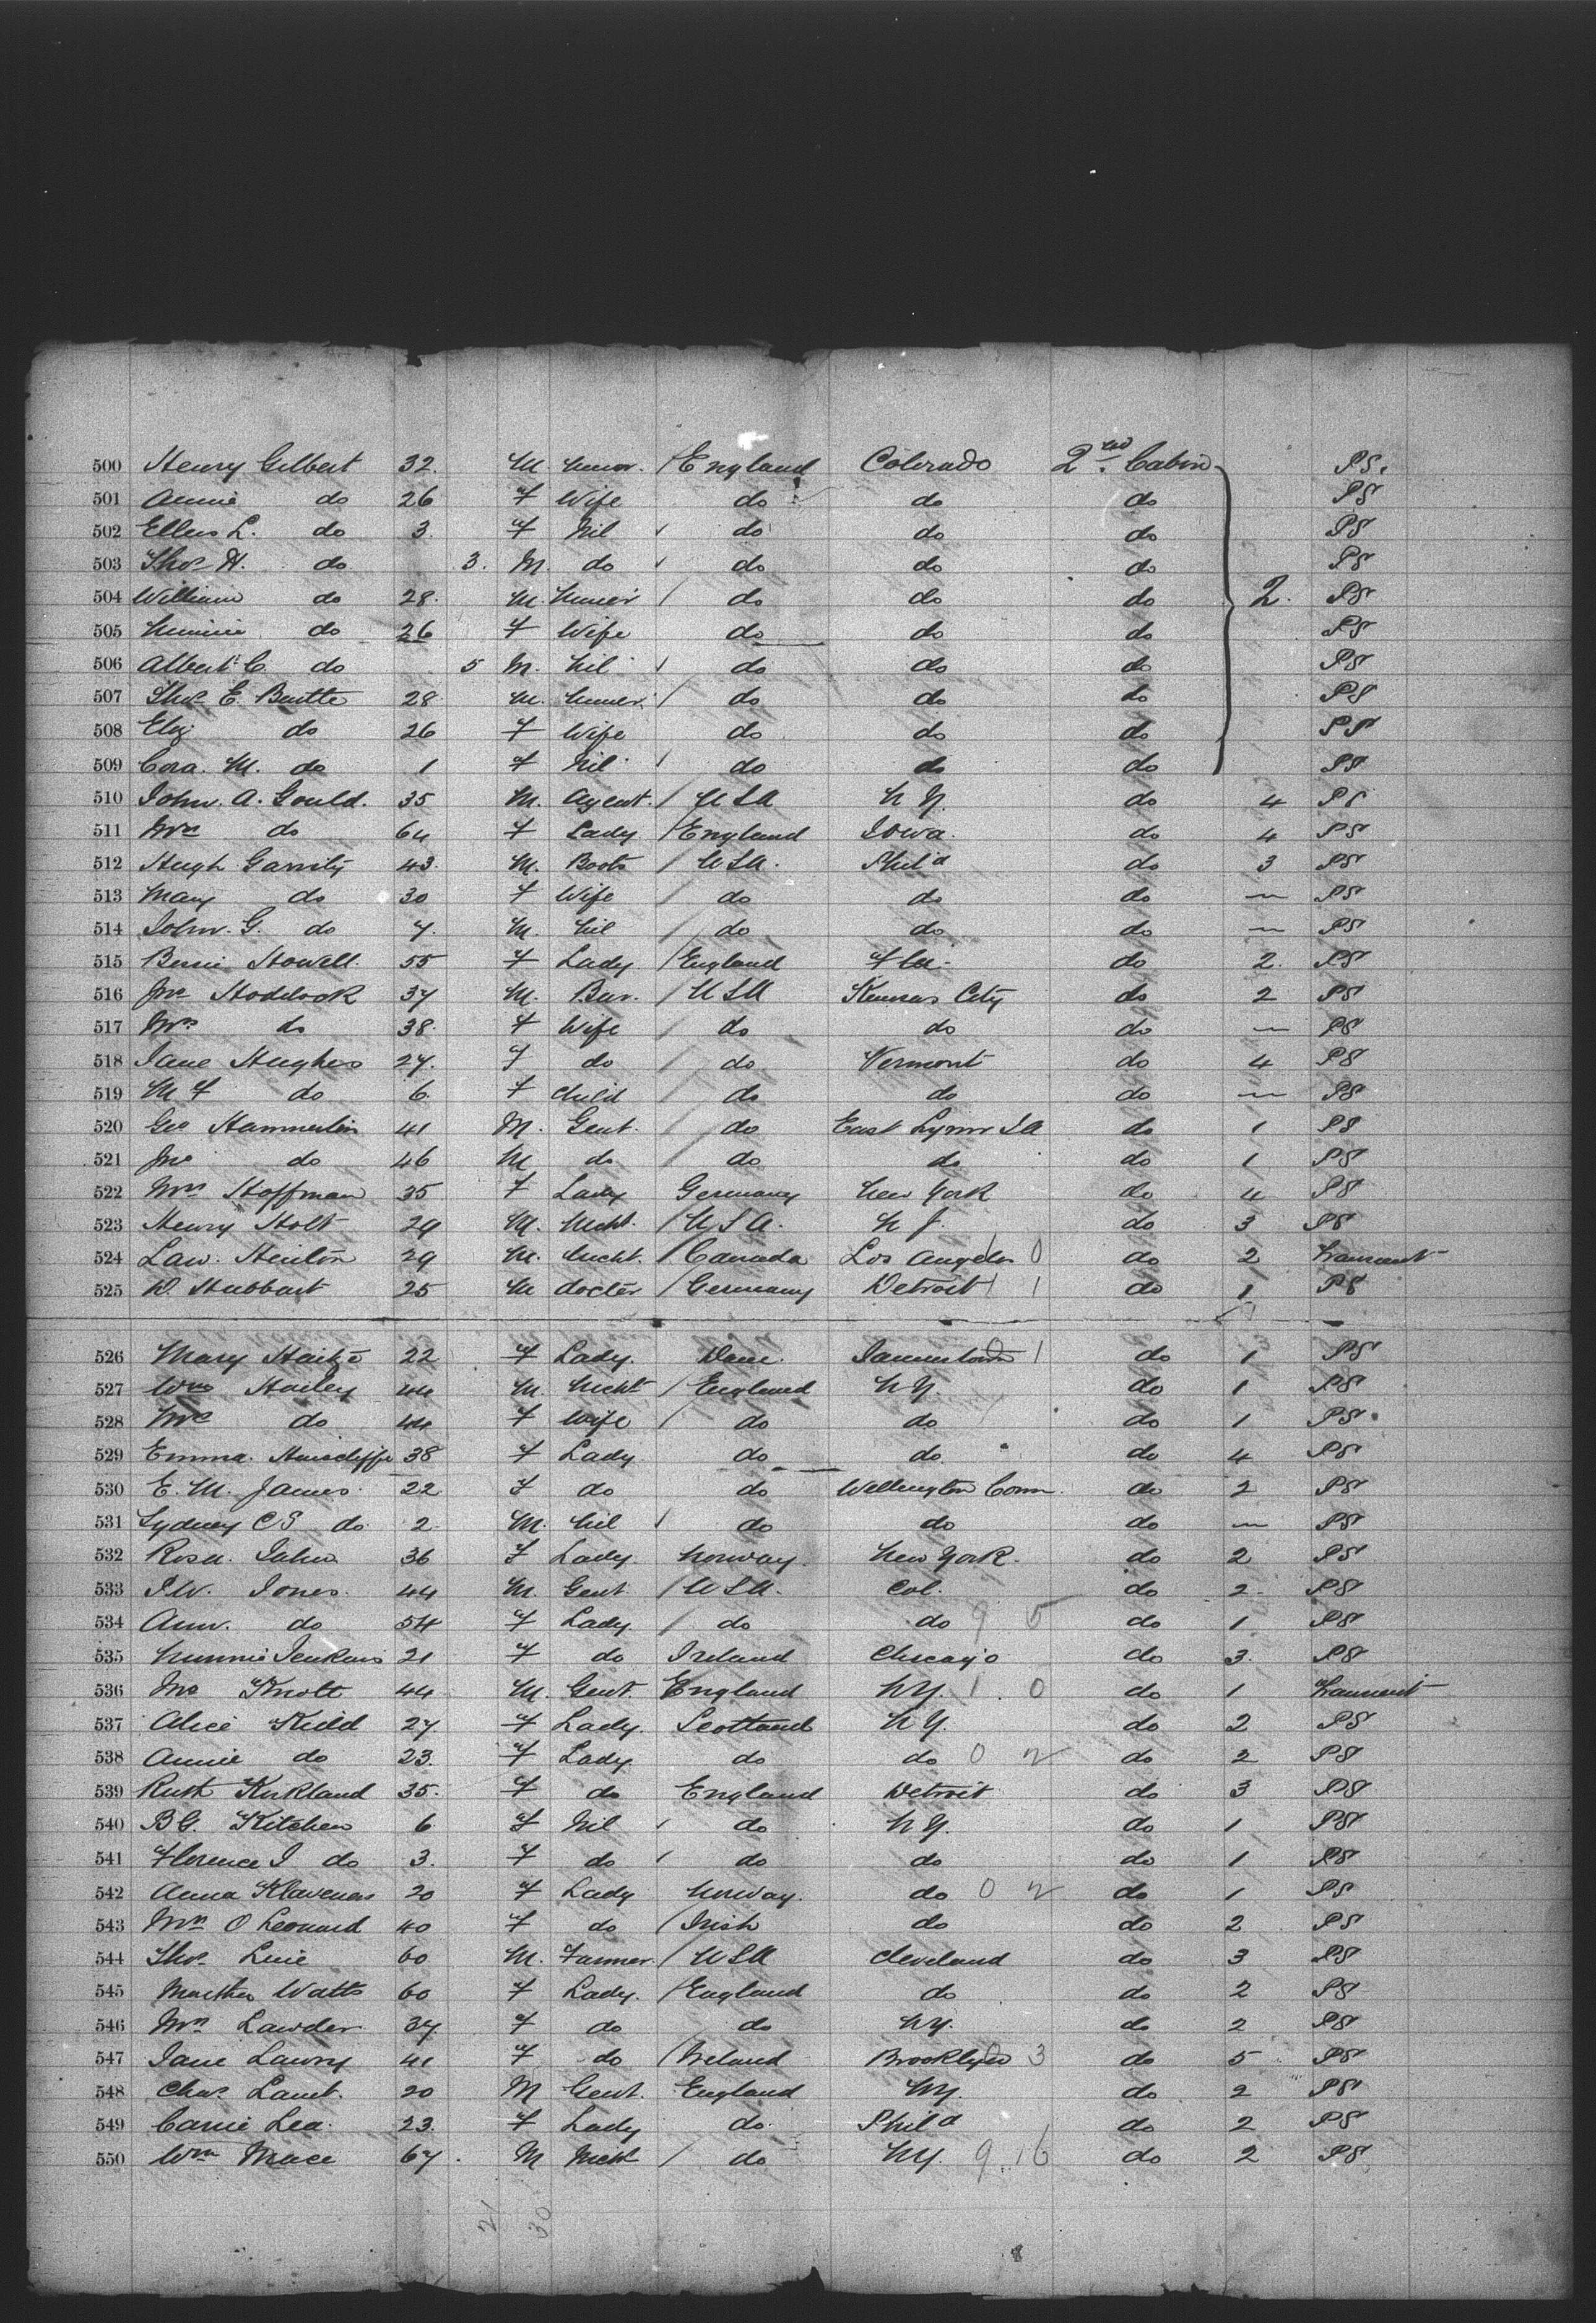 500 Henry Gilbert 32. M. miner. / England Colorado 2nd Cabin PS.
501 Annie do 26 F Wife do do do PS
502 Ellen L. do 3. F Nil do do do PS
503 Thos H. do 3. M. do do do do PS
504 William do 28. M. Miner / do do do 2. PS
505 Minnie do 26 F Wife do do do PS
506 Albert C. do 5 M. Nil do do do PS
507 Thos E. 28 M. Miner / do do do PS
508 Eliz do 26 F Wife do do do PS
509 Cora. M. do 1 F Nil do do do PS
510 John. A. Gould. 35 M. Agent. / USA N Y. do 4 PS
511 Mrs do 64 F Lady / England Iowa. do 4 PS
512 Hugh Garrity 43. M. Boots / USA. Phila do 3 PS
513 Mary do 30 F Wife / do do do — PS
514 John. G. do 7. M. Nil / do do do — PS
515 Howell. 55 F Lady / England do 2. PS
516 Jno Hoddock 37 M. / USA Kansas City do 2 PS
517 Mrs do 38. F Wife / do do do — PS
518 Jane Hughes 27. F do / do Vermont do 4 PS
519 M F do 6. F child / do do do — PS
520 Geo Hammerlin 41 M. Gent. / do East Lynn do 1 PS
521 Jno do 46 M do / do do do 1 PS
522 Mrs Hoffman 35 F Lady Germany New York do 4 PS
523 Henry Holt 29 M. Mcht. / USA. N J. do 3 PS
524 Law. Henton 29 M. Mcht. / Canada Los Angeles 0 do 2 Transient
525 D. Hubbart 25 M doctor / Germany Detroit 1 1 do 1 PS
526 Mary 22 F Lady. Dane. Jamestown 0 1 do 1 PS
527 Wm Hailey 44 M. Mcht / England N Y. do 1 PS
528 Mrs do 44 F Wife / do do do 1 PS
529 Emma. Hinscliffe 38 F Lady do do. do 4 PS
530 E. M. James. 22 F do do Wellington Conn. do 2 PS
531 Sydney C S do 2 M. Nil do do do — PS
532 Rosa. 36 F Lady Norway. New York. do 2 PS
533 J.W. Jones. 44 M. Gent / USA. Col. do 2 PS
534 Ann. do 54 F Lady / do do 9 5 do 1 PS
535 Minnie Jenkins 21 F do Ireland Chicago do 3. PS
536 Jno Knott 44 M. Gent. England NY. 1 0 do 1 Transient
537 Alice Kidd 27. F Lady. Scotland N Y. do 2 PS
538 Annie do 23. F Lady. do do 0 2 do 2 PS
539 Ruth Kirkland 35. F do England Detroit do 3 PS
540 BG. Kitchen 6 F Nil do N Y. do 1 PS
541 Florence I do 3. F do do do do 1 PS
542 Anna Klavenas 20 F Lady Norway. do 0 2 do 1 PS
543 Mrs O Leonard 40 F do / Irish do do 2 PS
544 Thos. 60 M. Farmer / USA Cleveland do 3 PS
545 Martha Watts 60 F Lady. / England do do 2 PS
546 Mrs Lawder 37. F do do NY. do 2 PS
547 Jane Lawry 41 F do / Ireland Brooklyn 0 3 do 5 PS
548 Chas. Lamb. 20 M Gent. England NY. do 2 PS
549 Carrie Lea. 23. F Lady do. Phila do 2 PS
550 Wm Mace 67. M Mcht / do NY. 9 16 do 2 PS
21 30
8